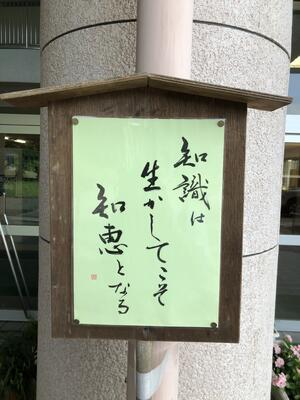 知識は
生かしてこそ
知恵となる